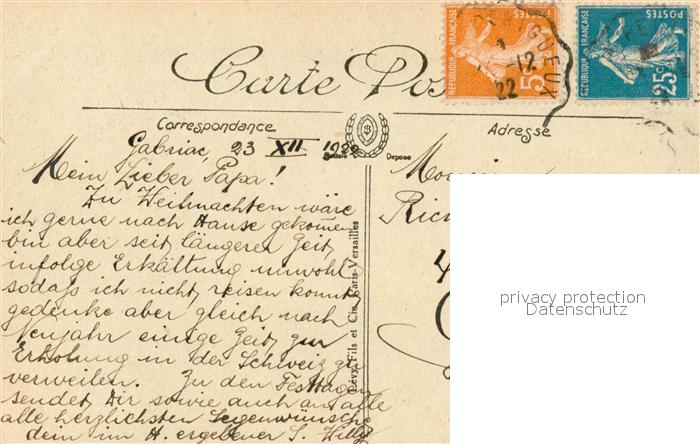 Carte Pos
RÉPUBLIQUE FRANÇAISE
POSTES
5c
RÉPUBLIQUE FRANÇAISE
POSTES
25c
GUEUX
-12
22
Correspondance
Adresse
Gabriac, 23 XII 1922
Déposé
Mein Lieber Papa!
Zu Weihnachten wäre
ich gerne nach Hause gekommen
bin aber seit längerer Zeit
infolge Erkältung unwohl
sodaß ich nicht reisen konnte
gedenke aber gleich nach
Neujahr einige Zeit zur
Erholung in der Schweiz zu
verweilen. Zu den Festtagen
sendet Dir sowie auch an alle
alle herzlichsten Segenwünsche
dein im H. ergebener S. Willy
Lévy Fils et Cie, Paris-Versailles
Rich
4
privacy protection
Datenschutz